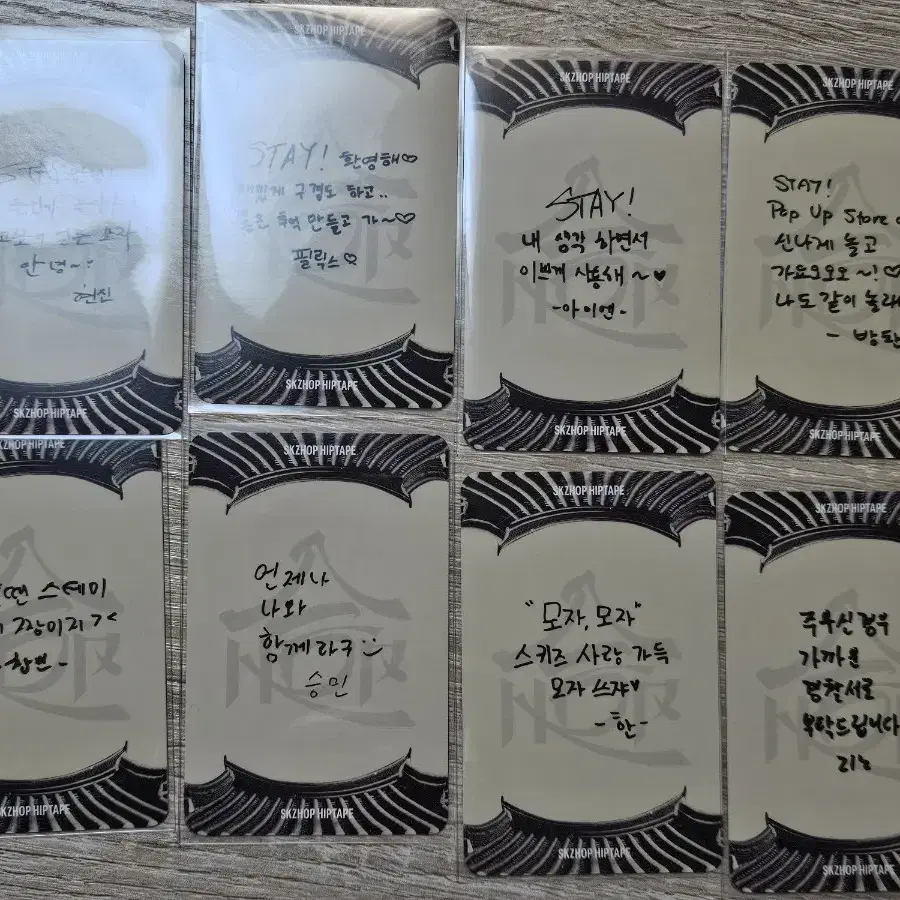 SKZHOP HIPTAPE
안녕~!
현진
SKZHOP HIPTAPE
SKZHOP HIPTAPE
STAY! 환영해♡
구경도 하고..
만들고 가~♡
필릭스♡
SKZHOP HIPTAPE
SKZHOP HIPTAPE
STAY!
내 생각 하면서
이쁘게 사용해~♥
-아이엔-
SKZHOP HIPTAPE
SKZHOP HIPTAPE
STAY!
Pop Up Store
신나게 놀고
가요오오오~!♡
나도 같이 놀래
- 방찬
SKZHOP HIPTAPE
SKZHOP HIPTAPE
땐 스테이
SKZHOP HIPTAPE
SKZHOP HIPTAPE
언제나
나와
함께라구
승민
SKZHOP HIPTAPE
SKZHOP HIPTAPE
"모자, 모자"
스키즈 사랑 가득
모자 쓰쟈♥
-한-
SKZHOP HIPTAPE
SKZHOP HIPTAPE
주우신 경우
가까운
경찰서로
부탁드립니다
리노
SKZHOP HIPTAPE